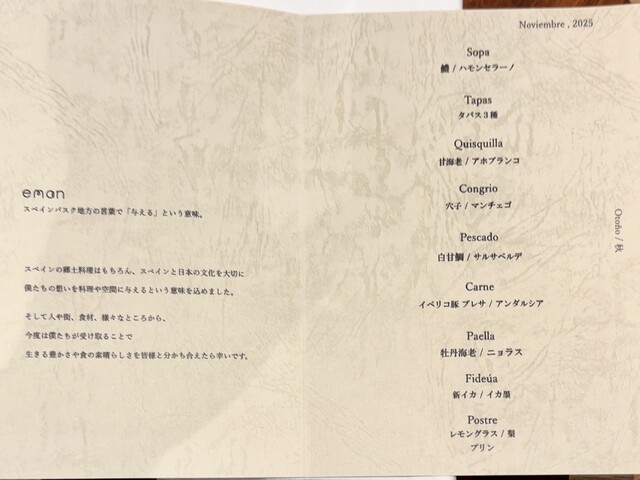 eman
スペインバスク地方の言葉で「与える」という意味。
スペインの郷土料理はもちろん、スペインと日本の文化を大切に
僕たちの想いを料理や空間に与えるという意味を込めました。
そして人や街、食材、様々なところから、
今度は僕たちが受け取ることで
生きる豊かさや食の素晴らしさを皆様と分かち合えたら幸いです。
Noviembre , 2025
Sopa
/ ハモンセラーノ
Tapas
タパス3種
Quisquilla
甘海老 / アホブランコ
Congrio
穴子 / マンチェゴ
Pescado
白甘鯛 / サルサベルデ
Carne
イベリコ豚 プレサ / アンダルシア
Paella
牡丹海老 / ニョラス
Fideúa
新イカ / イカ墨
Postre
レモングラス / 梨
プリン
Otoño / 秋